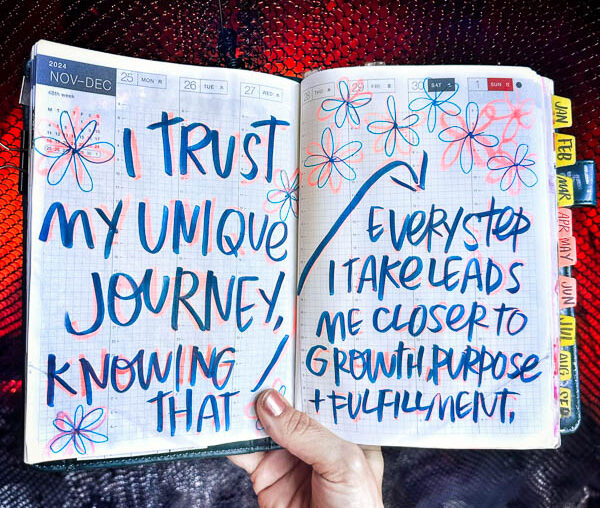 2024
NOV–DEC
48th week
25 MON 月
26 TUE 火
27 WED 水
I TRUST
MY UNIQUE
JOURNEY,
KNOWING
THAT
28 THU 木
29 FRI 金
30 SAT 土
1 SUN 日
EVERY STEP
I TAKE LEADS
ME CLOSER TO
GROWTH, PURPOSE
+ FULFILLMENT.
JAN
FEB
MAR
APR MAY
JUN
JUL
AUG
SEP